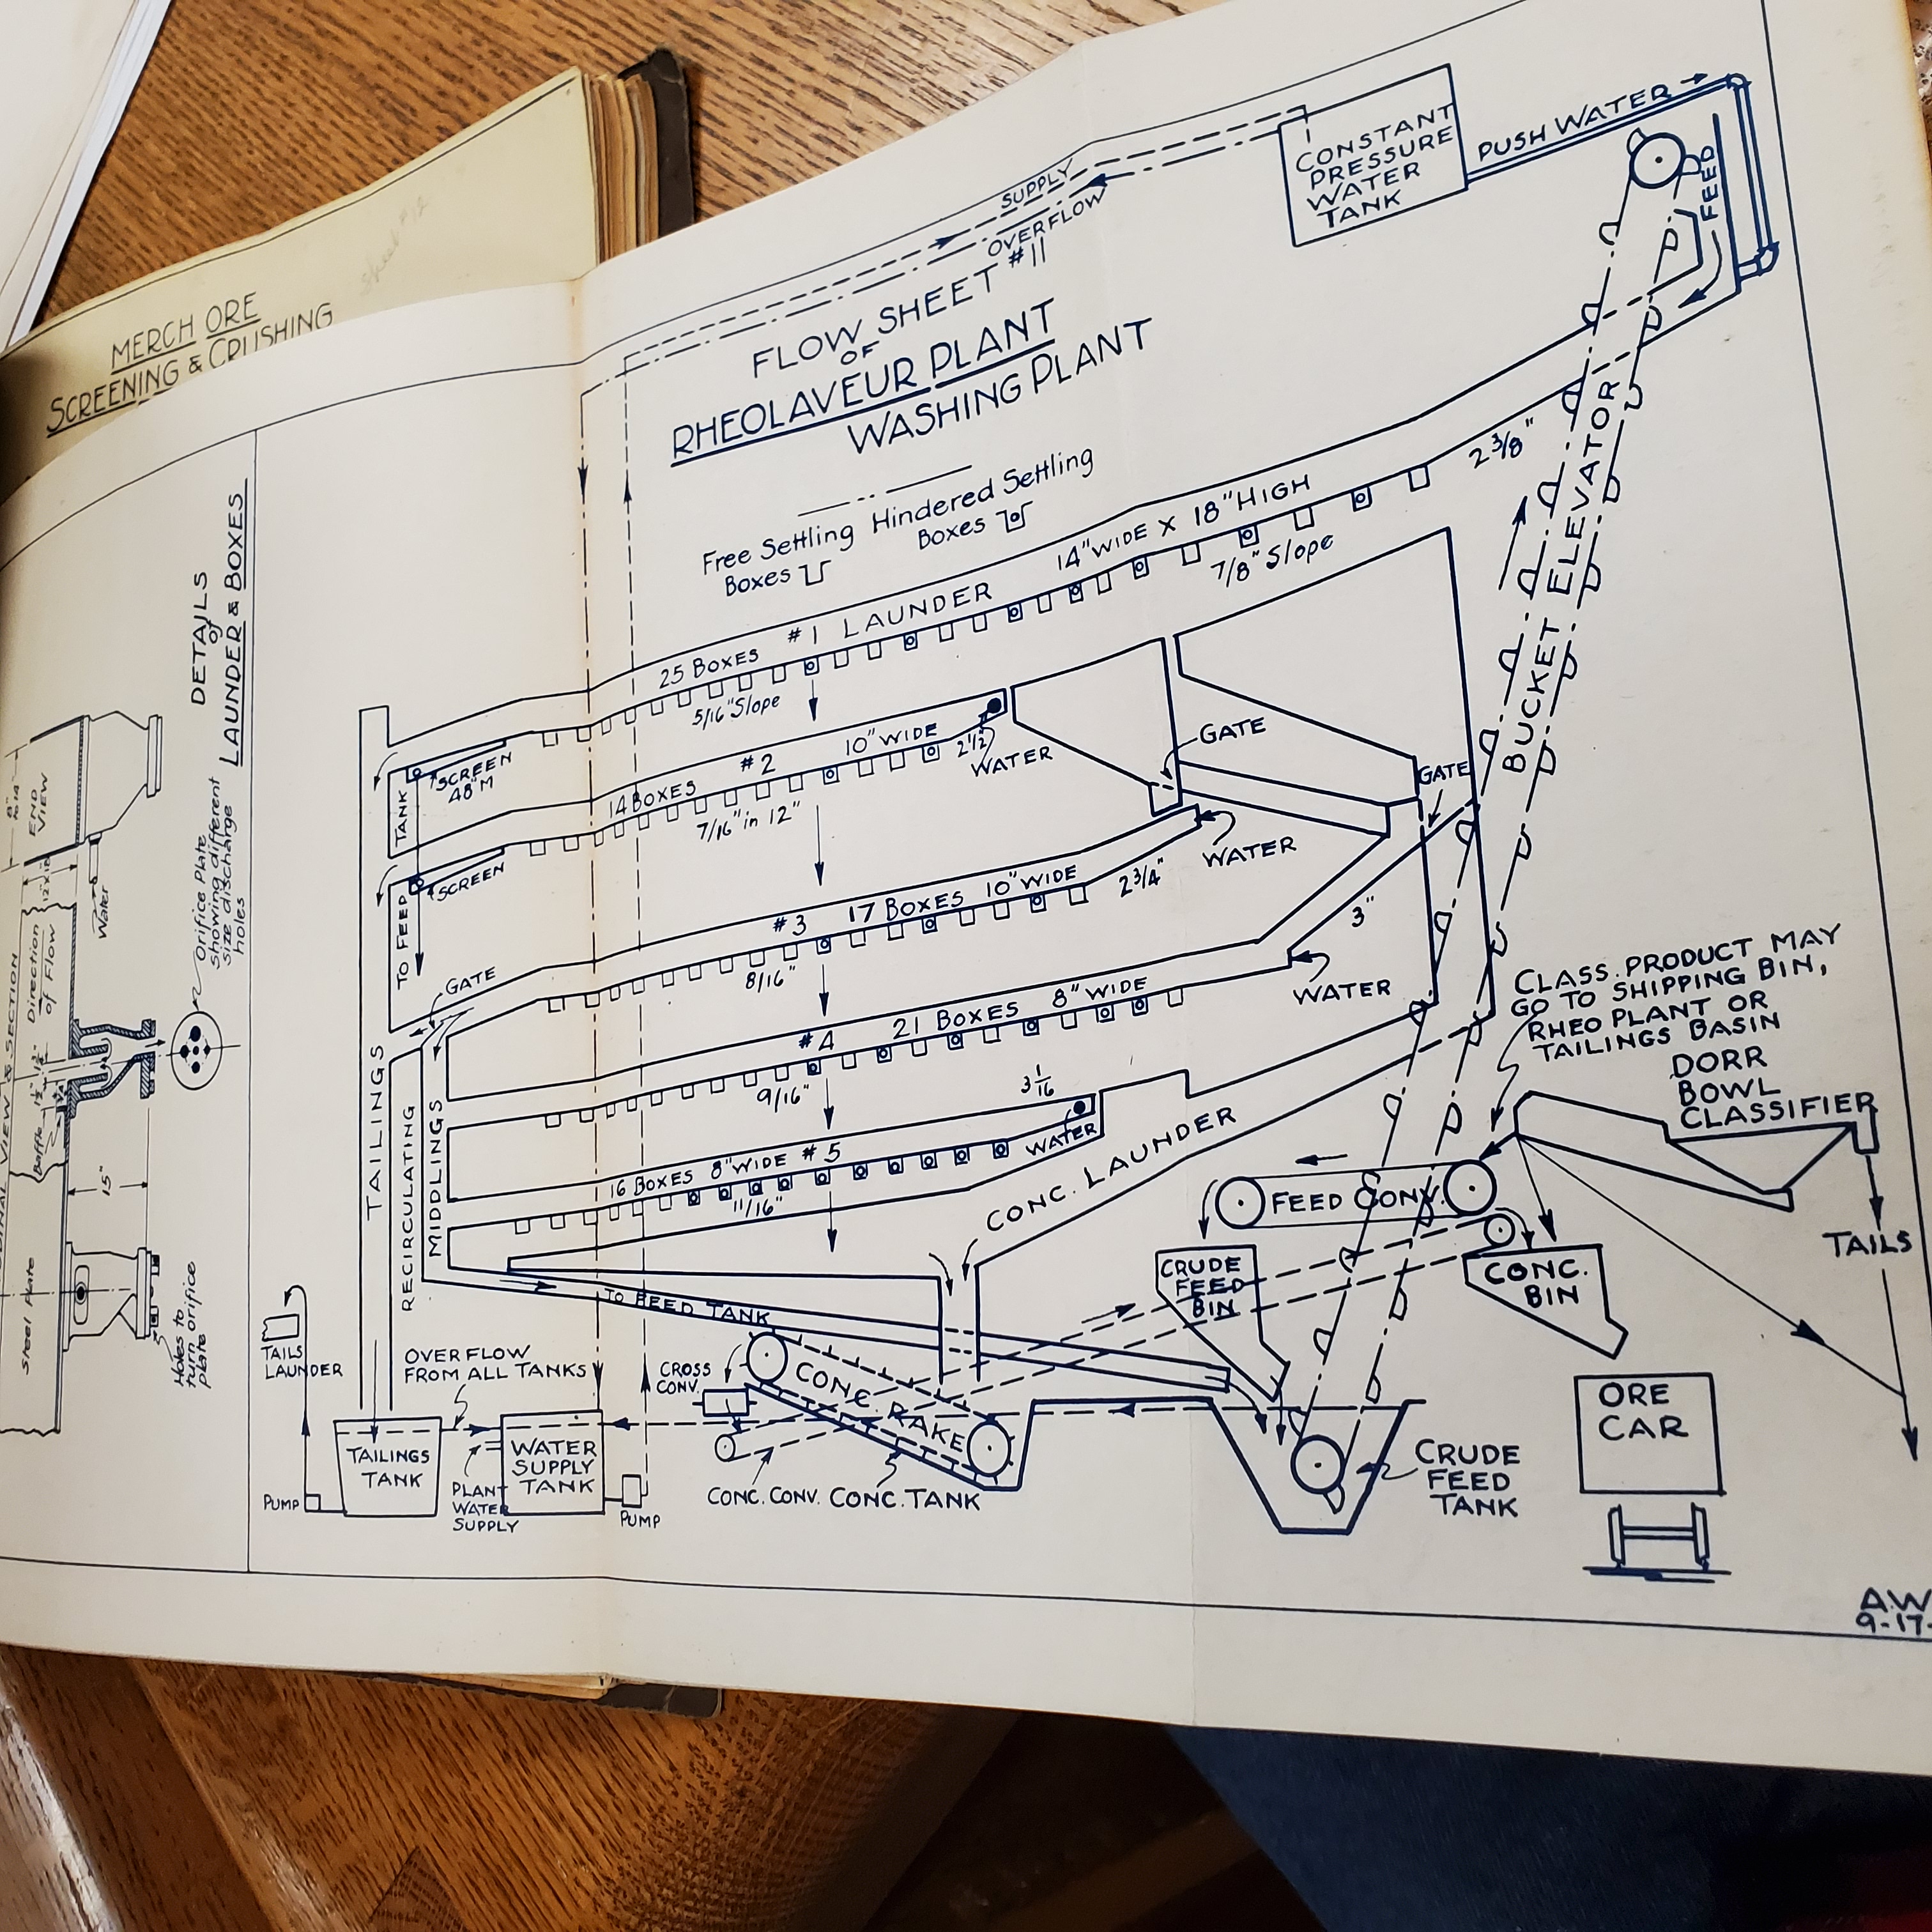 MERCH ORE
SCREENING & CRUSHING
FLOW SHEET #11
OF
RHEOLAVEUR PLANT
WASHING PLANT
SUPPLY
OVERFLOW
CONSTANT
PRESSURE
WATER
TANK
PUSH WATER
FEED
Free Settling
Boxes
Hindered Settling
Boxes
25 BOXES #1 LAUNDER 14" WIDE X 18" HIGH
2 3/8"
7/8" Slope
5/16" Slope
BUCKET ELEVATOR
SCREEN
48"M
TANK
14 BOXES #2 10" WIDE
2 1/2"
WATER
7/16" in 12"
GATE
GATE
SCREEN
TO FEED
#3 17 BOXES 10" WIDE
2 3/4"
WATER
8/16"
GATE
#4 21 BOXES 8" WIDE
3"
WATER
9/16"
3 1/16
WATER
16 BOXES 8" WIDE #5
11/16"
TAILINGS
RECIRCULATING
MIDDLINGS
CONC. LAUNDER
TO FEED TANK
CLASS. PRODUCT MAY
GO TO SHIPPING BIN,
RHEO PLANT OR
TAILINGS BASIN
DORR
BOWL
CLASSIFIER
TAILS
FEED CONV.
CRUDE
FEED
BIN
CONC.
BIN
ORE
CAR
CRUDE
FEED
TANK
TAILS
LAUNDER
OVERFLOW
FROM ALL TANKS
CROSS
CONV.
CONC. RAKE
TAILINGS
TANK
WATER
SUPPLY
TANK
PUMP
PLANT
WATER
SUPPLY
PUMP
CONC. CONV.
CONC. TANK
A.W
9-17-
DETAILS
of
LAUNDER & BOXES
END
VIEW
Water
Orifice Plate
showing different
size discharge
holes
Direction
of Flow
Baffle
VIEW & SECTION
15"
Steel Plate
Holes to
turn orifice
plate